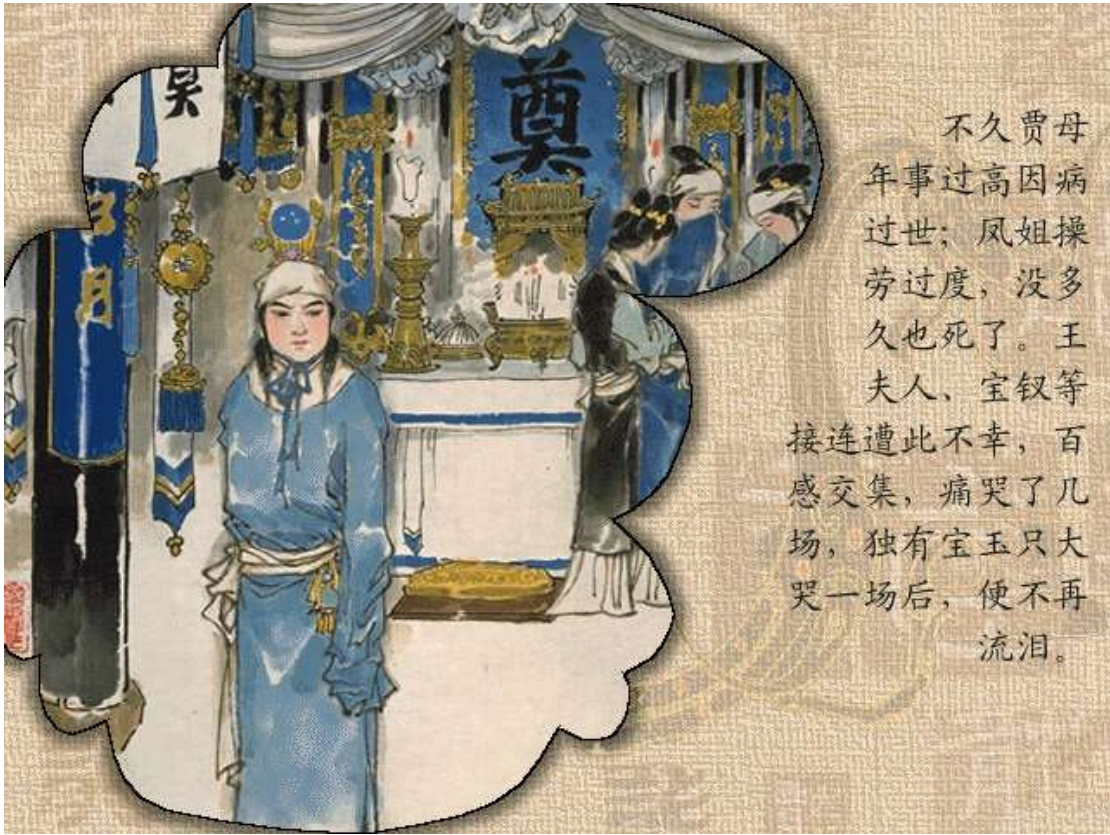 奠
不久贾母
年事过高因病
过世；凤姐操
劳过度，没多
久也死了。王
夫人、宝钗等
接连遭此不幸，百
感交集，痛哭了几
场，独有宝玉只大
哭一场后，便不再
流泪。